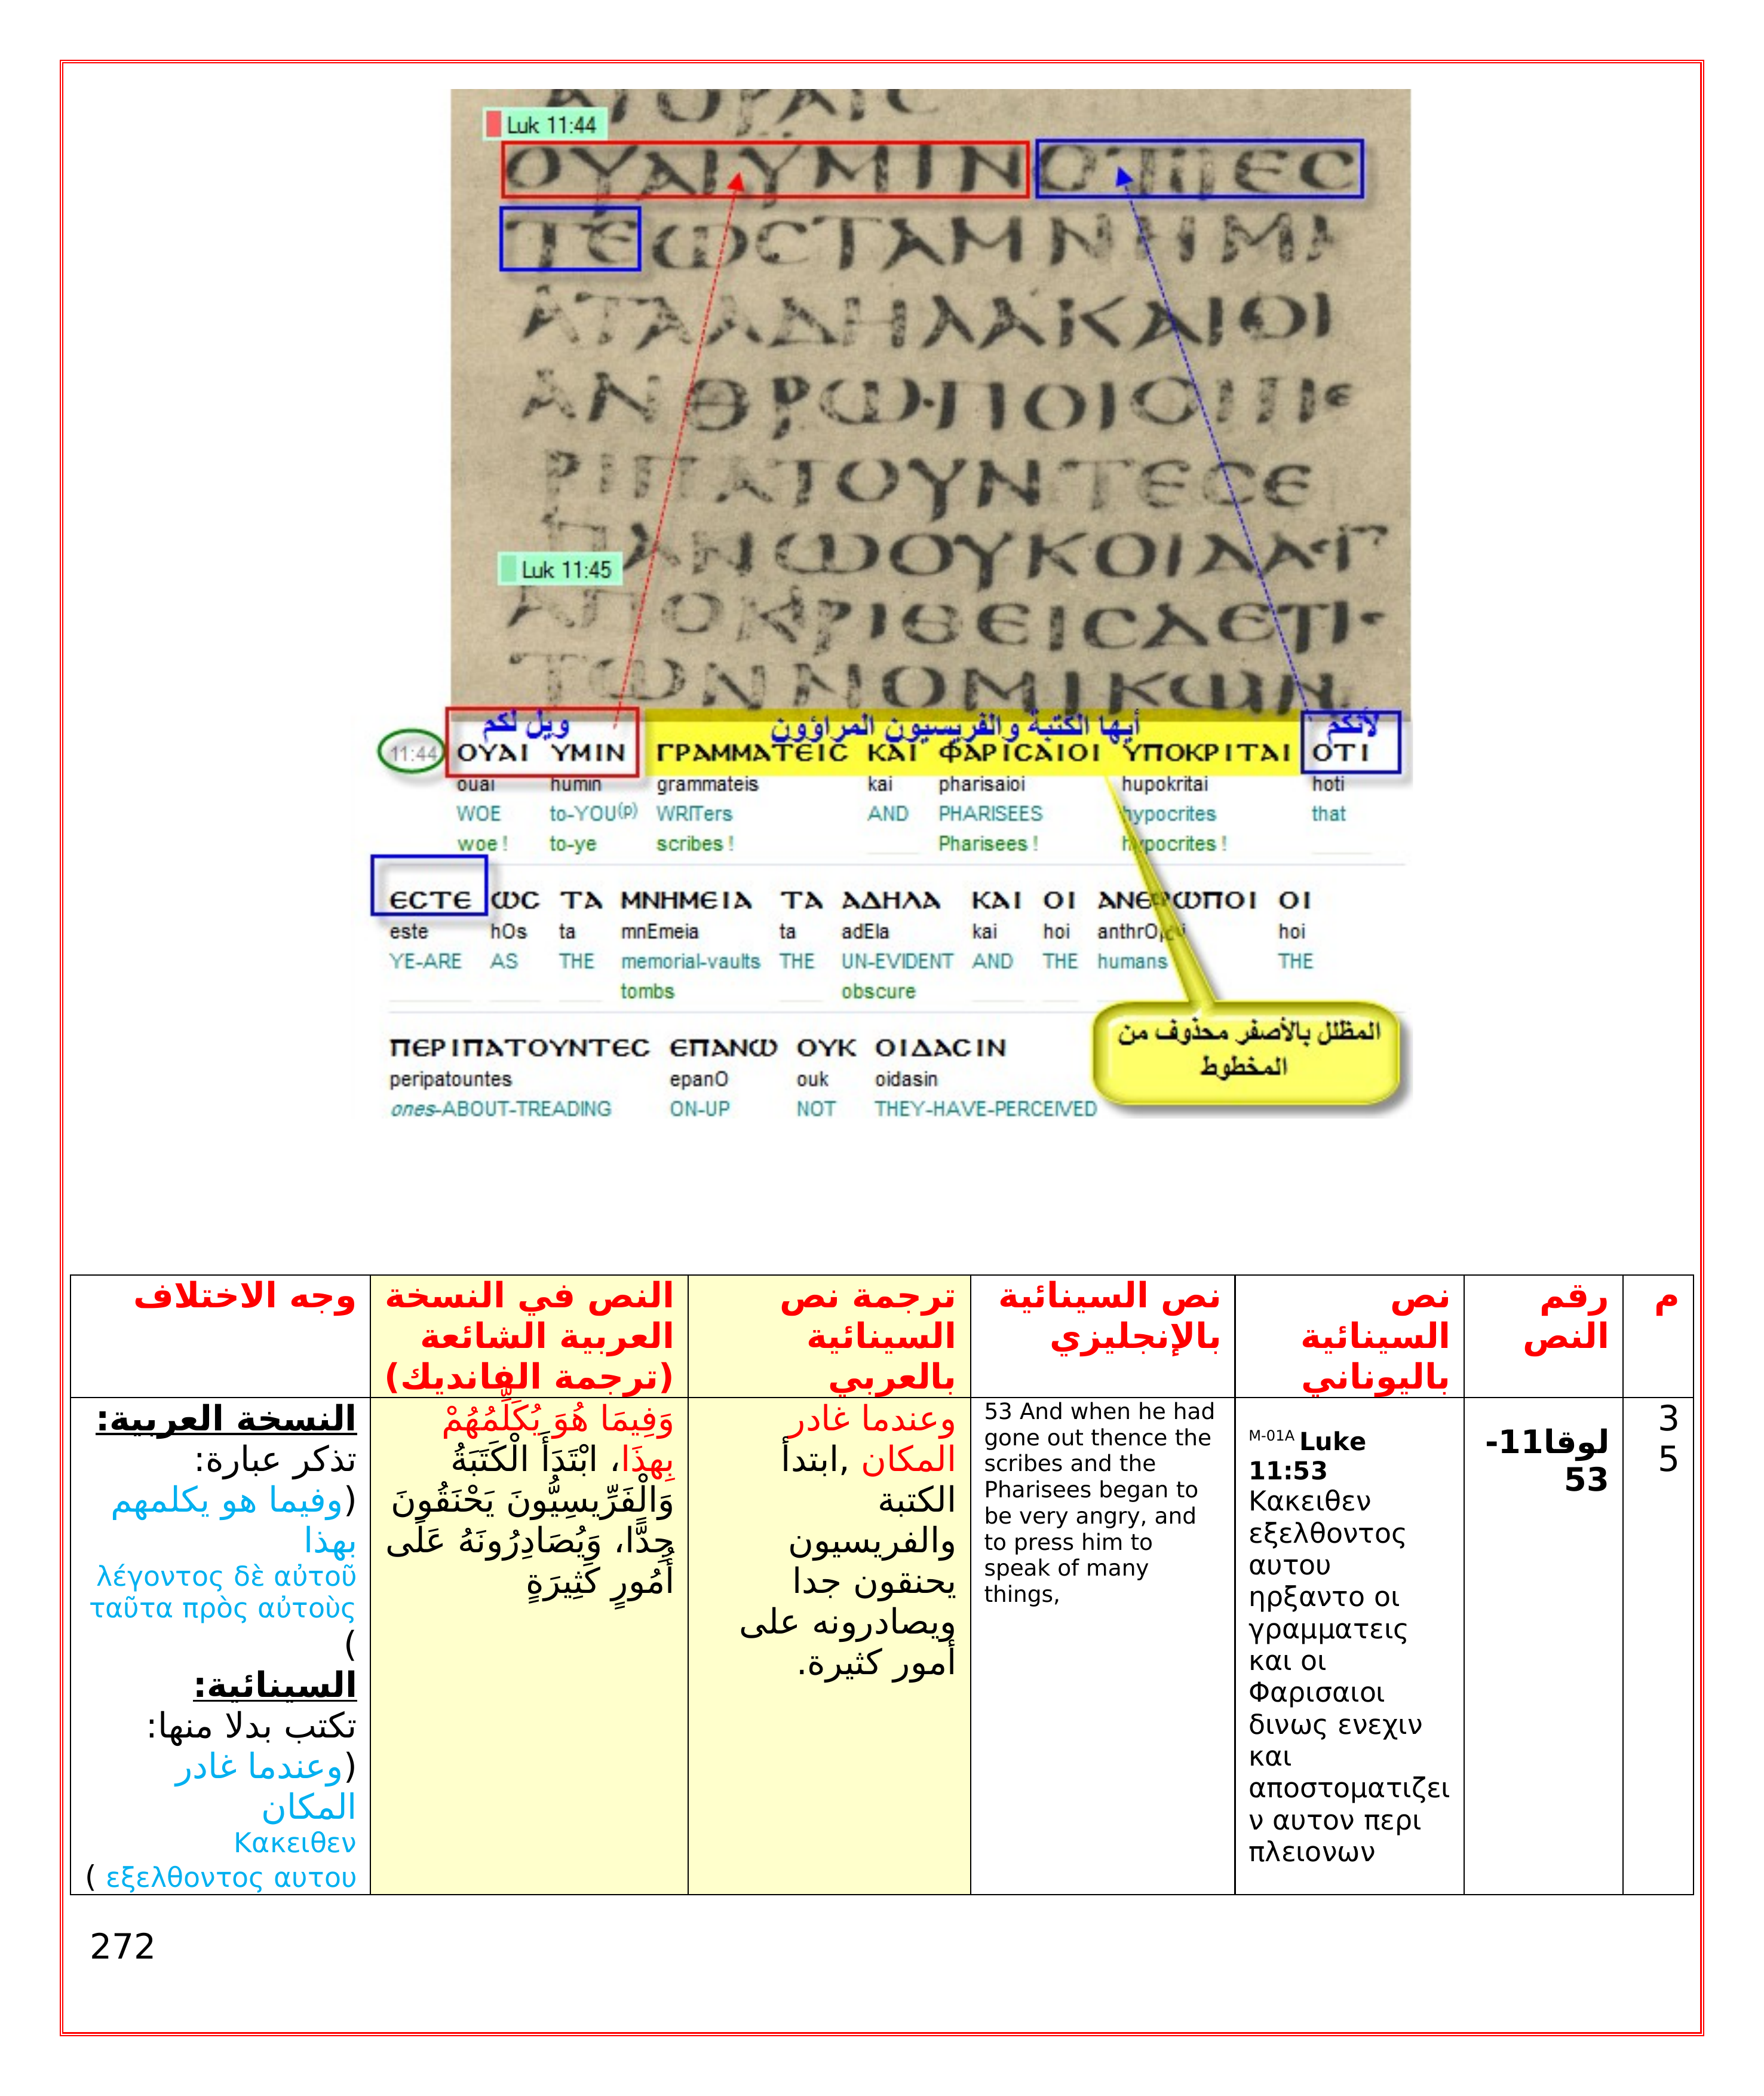 Luk 11:44
ΟΥΑΙΥΜΙΝΟΤΙΕϹ
ΤΕΩϹΤΑΜΝΗΜΙ
ΑΤΑΑΔΗΛΑΚΑΙΟΙ
ΑΝΘΡΩΠΟΙΟΙΠΕ
ΡΙΠΑΤΟΥΝΤΕϹΕ
ΠΑΝΩΟΥΚΟΙΔΑϹΙ
Luk 11:45
ΑΠΟΚΡΙΘΕΙϹΔΕΤΙϹ
ΤΩΝΝΟΜΙΚΩΝ
ويل لكم
أيها الكتبة والفريسيون المراؤون
لأنكم
11:44 ΟΥΑΙ ΥΜΙΝ ΓΡΑΜΜΑΤΕΙϹ ΚΑΙ ΦΑΡΙϹΑΙΟΙ ΥΠΟΚΡΙΤΑΙ ΟΤΙ
ouai humin grammateis kai pharisaioi hupokritai hoti
WOE to-YOU(p) WRITers AND PHARISEES hypocrites that
woe ! to-ye scribes ! Pharisees ! hypocrites !
ΕϹΤΕ ΩϹ ΤΑ ΜΝΗΜΕΙΑ ΤΑ ΑΔΗΛΑ ΚΑΙ ΟΙ ΑΝΘΡΩΠΟΙ ΟΙ
este hOs ta mnEmeia ta adEla kai hoi anthrOpoi hoi
YE-ARE AS THE memorial-vaults THE UN-EVIDENT AND THE humans THE
tombs obscure
ΠΕΡΙΠΑΤΟΥΝΤΕϹ ΕΠΑΝΩ ΟΥΚ ΟΙΔΑϹΙΝ
peripatountes epanO ouk oidasin
ones-ABOUT-TREADING ON-UP NOT THEY-HAVE-PERCEIVED
المظلل بالأصفر محذوف من
المخطوط
م
رقم
النص
نص
السينائية
باليوناني
نص السينائية
بالإنجليزي
ترجمة نص
السينائية
بالعربي
النص في النسخة
العربية الشائعة
(ترجمة الفانديك)
وجه الاختلاف
3
5
لوقا11-
53
M-01A Luke
11:53
Κακειθεν
εξελθοντος
αυτου
ηρξαντο οι
γραμματεις
και οι
Φαρισαιοι
δινως ενεχιν
και
αποστοματιζει
ν αυτον περι
πλειονων
53 And when he had
gone out thence the
scribes and the
Pharisees began to
be very angry, and
to press him to
speak of many
things,
وعندما غادر
المكان ,ابتدأ
الكتبة
والفريسيون
يحنقون جدا
ويصادرونه على
أمور كثيرة.
وَفِيمَا هُوَ يُكَلِّمُهُمْ
بِهذَا، ابْتَدَأَ الْكَتَبَةُ
وَالْفَرِّيسِيُّونَ يَحْنَقُونَ
جِدًّا، وَيُصَادِرُونَهُ عَلَى
أُمُورٍ كَثِيرَةٍ
النسخة العربية:
تذكر عبارة:
(وفيما هو يكلمهم
بهذا
λέγοντος δὲ αὐτοῦ
ταῦτα πρὸς αὐτοὺς
)
السينائية:
تكتب بدلا منها:
(وعندما غادر
المكان
Κακειθεν
εξελθοντος αυτου )
272